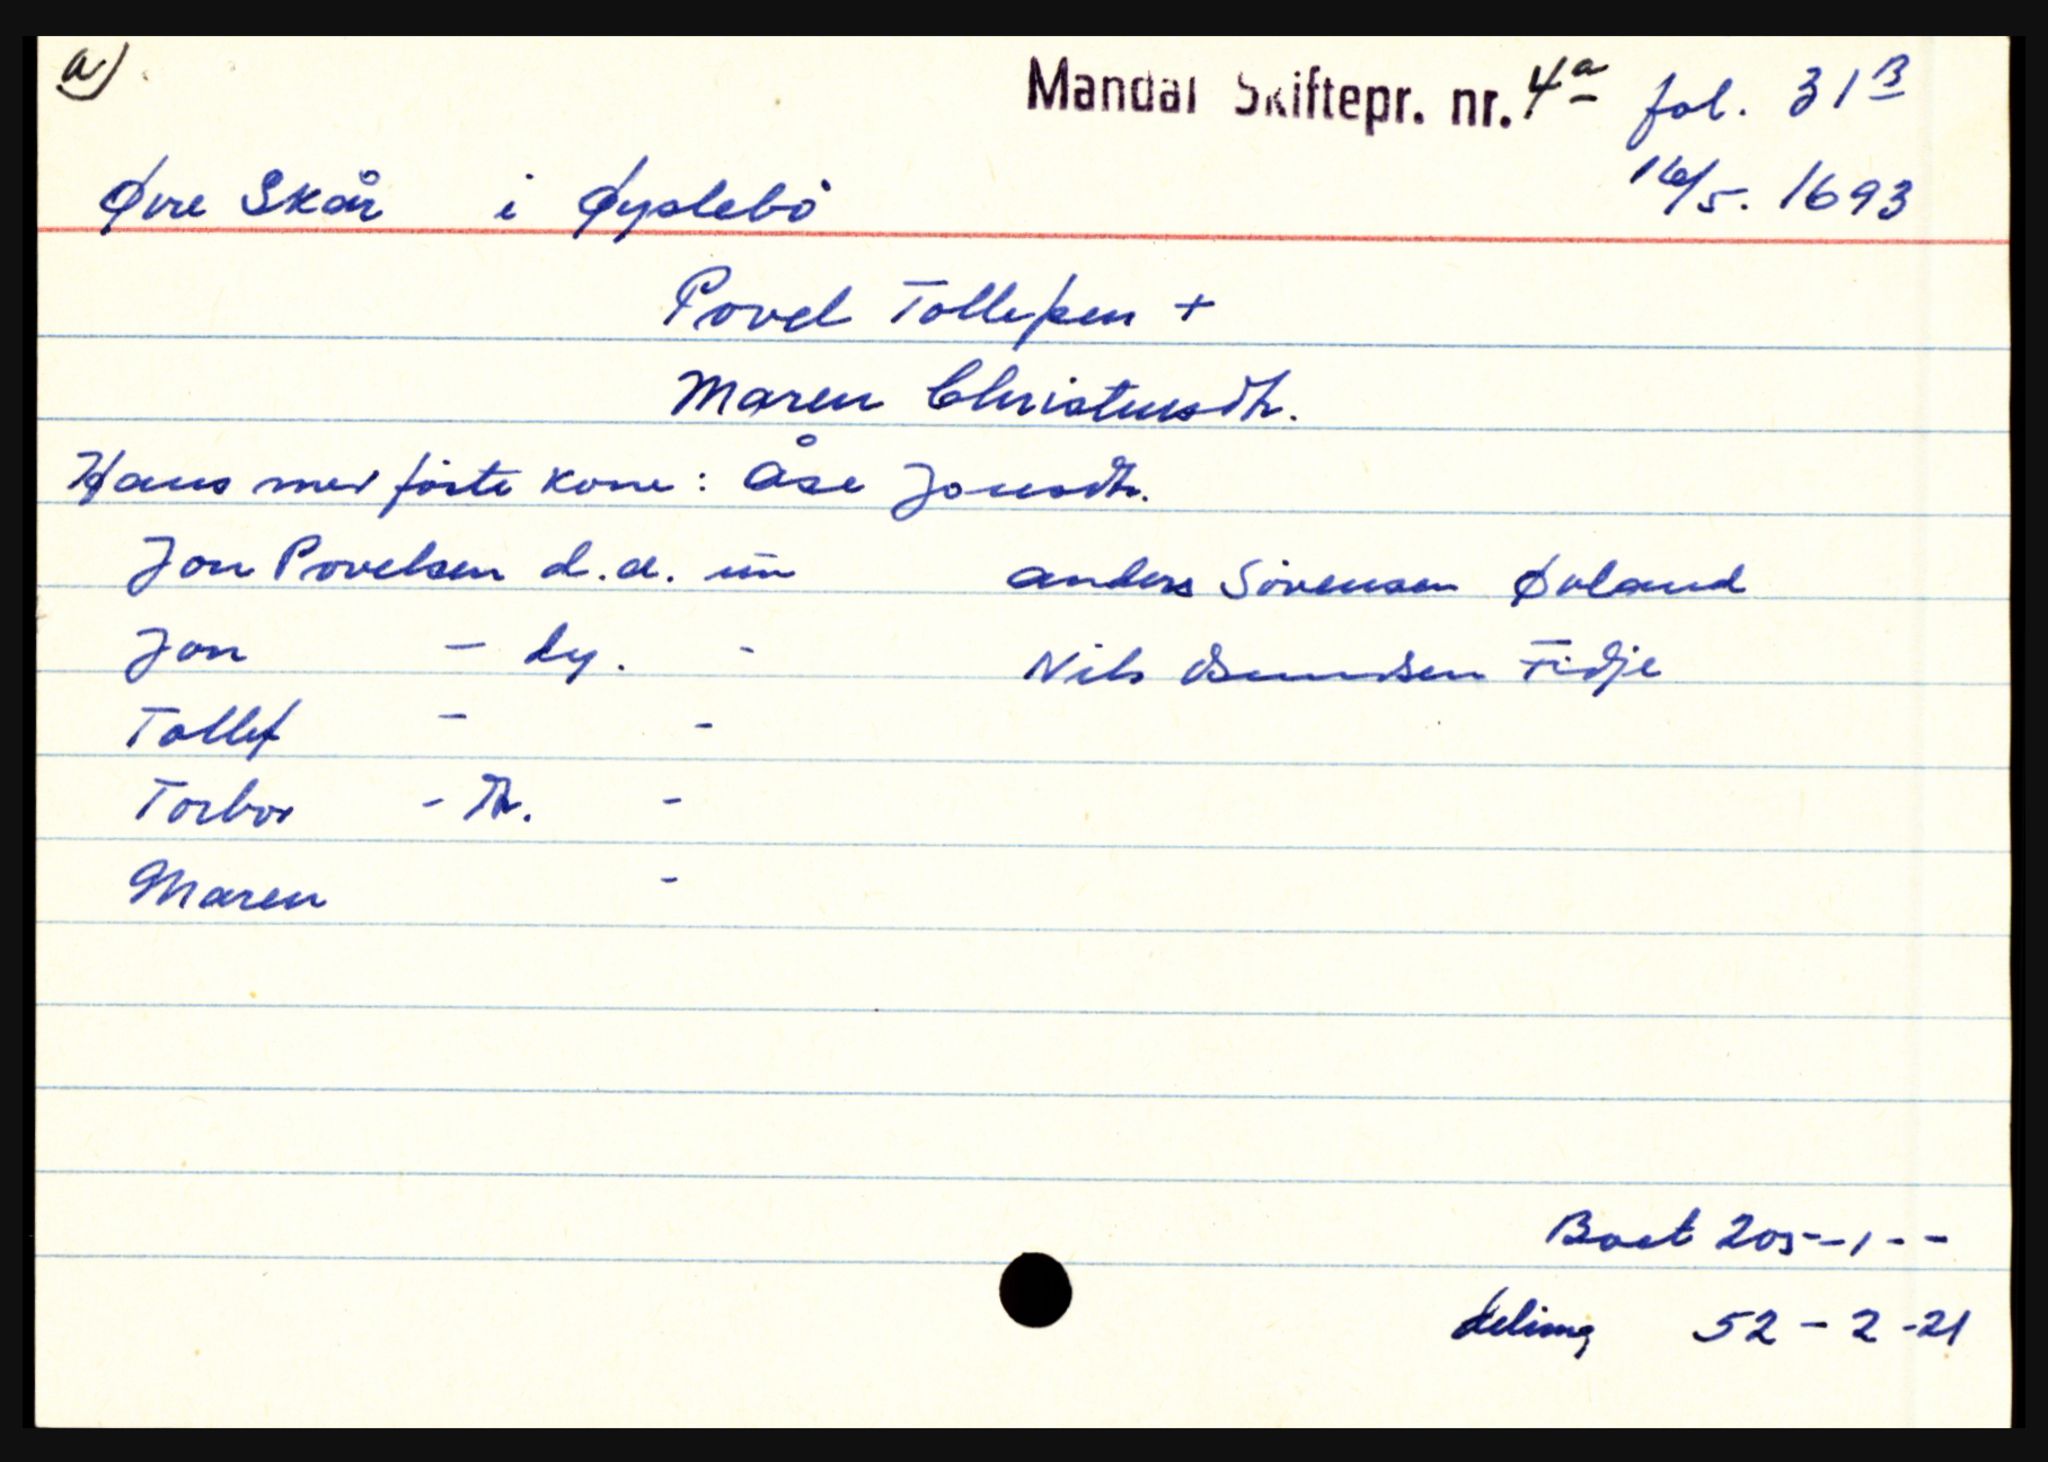 a)
Mandal Skiftepr. nr. 4a fol. 31B
Øvre Skår i Øyslebö 16/5. 1693
Povel Tollefsen +
Maren Christensdtr.
Hans med förste kone: Åse Jonsdtr.
Jon Povelsen d.e. um Anders Sörensen Øvland
Jon - dy. - Nils Osmundsen Fidje
Tollef - -
Torbor - dtr. -
Maren -
Boet 205-1--
deling 52-2-21